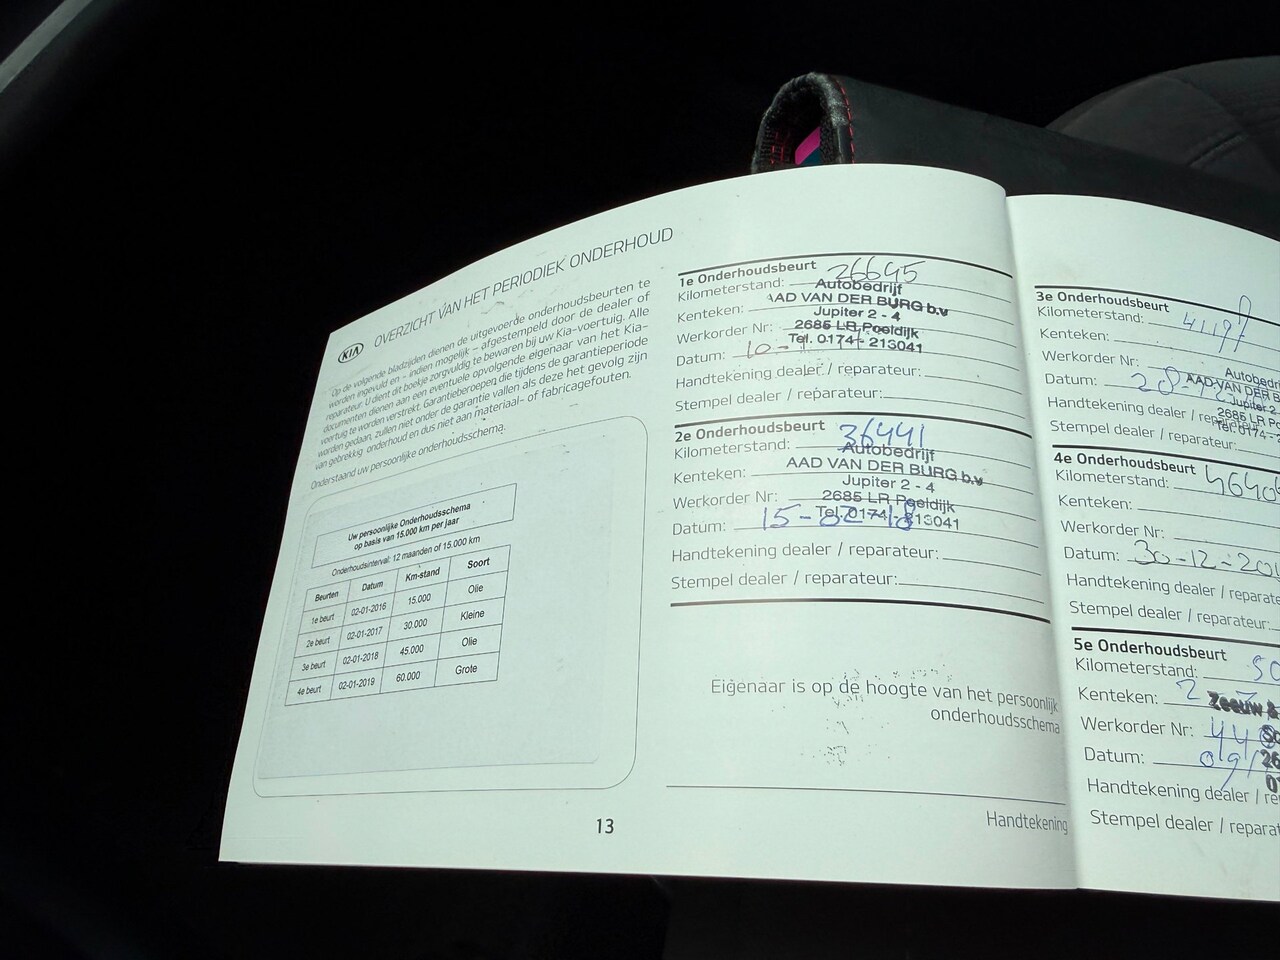 KIA OVERZICHT VAN HET PERIODIEK ONDERHOUD
Op de volgende bladzijden dienen de uitgevoerde onderhoudsbeurten te
worden ingevuld en - indien mogelijk - afgestempeld door de dealer of
reparateur. U dient dit boekje zorgvuldig te bewaren bij uw Kia-voertuig. Alle
documenten dienen aan een eventuele opvolgende eigenaar van het Kia-
voertuig te worden verstrekt. Garantieberoepen, die tijdens de garantieperiode
worden gedaan, zullen niet onder de garantie vallen als deze het gevolg zijn
van gebrekkig onderhoud en dus niet aan materiaal- of fabricagefouten.
Onderstaand uw persoonlijke onderhoudsschema.
Uw persoonlijke Onderhoudsschema
op basis van 15.000 km per jaar
Onderhoudsinterval: 12 maanden of 15.000 km
Beurten Datum Km-stand Soort
1e beurt 02-01-2016 15.000 Olie
2e beurt 02-01-2017 30.000 Kleine
3e beurt 02-01-2018 45.000 Olie
4e beurt 02-01-2019 60.000 Grote
13
1e Onderhoudsbeurt
Kilometerstand: 26695
Autobedrijf
Kenteken: AAD VAN DER BURG b.v
Jupiter 2 - 4
Werkorder Nr: 2685 LR Poeldijk
Tel. 0174 - 213041
Datum: 10-
Handtekening dealer / reparateur:
Stempel dealer / reparateur:
2e Onderhoudsbeurt
Kilometerstand: 36441
Autobedrijf
Kenteken: AAD VAN DER BURG b.v
Jupiter 2 - 4
Werkorder Nr: 2685 LR Poeldijk
Tel. 0174 - 213041
Datum: 15-02-18
Handtekening dealer / reparateur:
Stempel dealer / reparateur:
Eigenaar is op de hoogte van het persoonlijk
onderhoudsschema
Handtekening
3e Onderhoudsbeurt
Kilometerstand:
Kenteken:
Werkorder Nr:
Datum:
AAD VAN DER B
Jupiter 2
Handtekening dealer / reparateur:
2685 LR Po
Tel. 0174 - 2
Stempel dealer / reparateur:
4e Onderhoudsbeurt
Kilometerstand:
Kenteken:
Werkorder Nr:
Datum: 30-12-20
Handtekening dealer / reparate
Stempel dealer / reparateur:
5e Onderhoudsbeurt
Kilometerstand:
Kenteken:
Zeeuw &
Werkorder Nr:
Datum:
Handtekening dealer / re
Stempel dealer / reparat